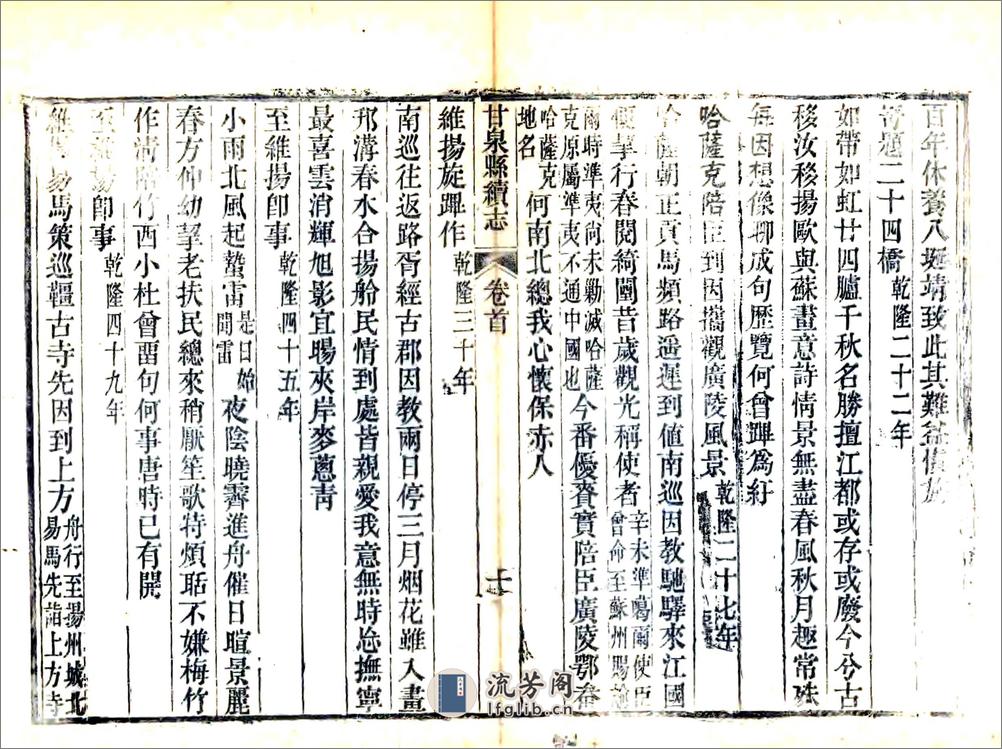 百年休養八埏靖致此其難益慎旃
寄題二十四橋 乾隆二十二年
如帶如虹廿四臚千秋名勝擅江都或存或廢今兮古
移汝移揚歐與蘇畫意詩情景無盡春風秋月趣常殊
每因想像聊成句歷覽何曾蹕爲紆
哈薩克陪臣到因攜觀廣陵風景 乾隆二十七年
哈薩朝正貢馬頻路遥遲到值南巡因教馳驛來江國
便挈行春閱綺闉昔歲觀光稱使者 辛未準噶爾使臣曾命至蘇州賜
爾時準夷尚未勦滅哈薩克原屬準夷不通中國也 今番優賚實陪臣廣陵鄂畚
哈薩克地名 何南北總我心懷保赤人
甘泉縣續志 卷首 十一
維揚旋蹕作 乾隆三十年
南巡往返路胥經古郡因教兩日停三月烟花雖入畫
邗溝春水合揚舲民情到處皆親愛我意無時忘撫寧
最喜雲消輝旭影宜暘夾岸麥蔥靑
至維揚卽事 乾隆四十五年
小雨北風起蟄雷 是日始聞雷 夜陰曉霽進舟催日暄景麗
春方仲幼挈老扶民總來稍厭笙歌特煩聒不嫌梅竹
作淸陪竹西小杜曾畱句何事唐時已有開
至維揚卽事 乾隆四十九年
維揚易馬策巡疆古寺先因到上方 舟行至揚州城北易馬先詣上方寺
流芳阁
lfglib.cn